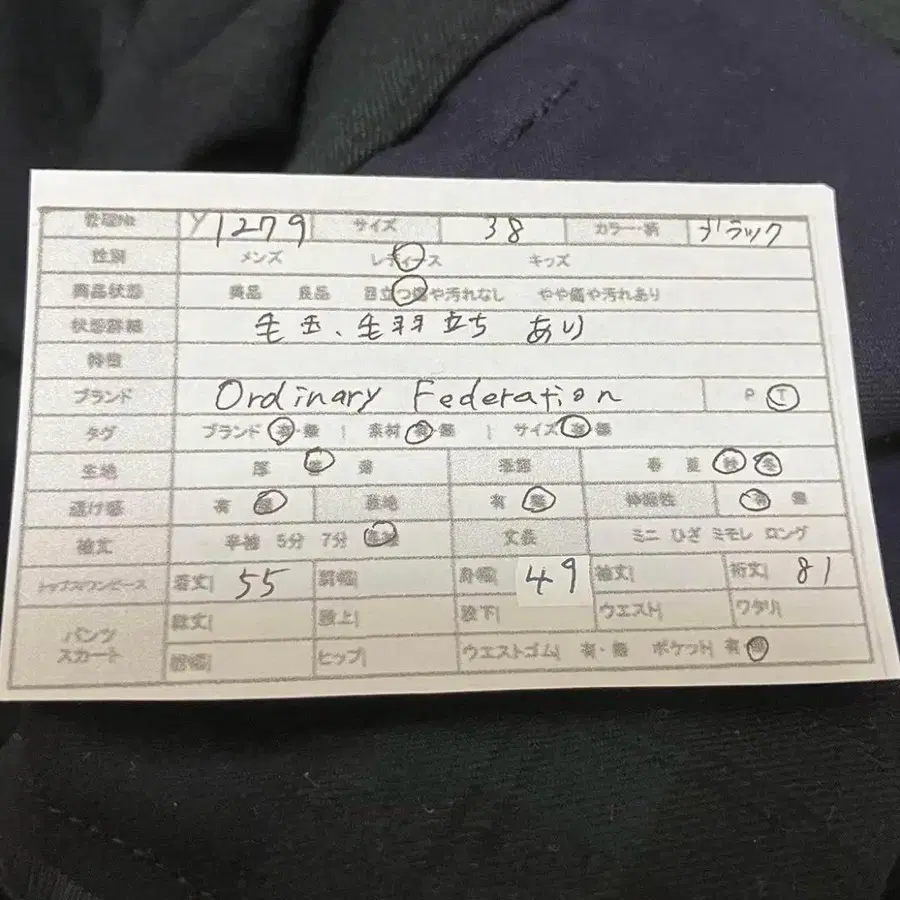 管理No Y1279 サイズ 38 カラー・柄 ブラック
性別 メンズ レディース キッズ
商品状態 美品 良品 目立つ傷や汚れなし やや傷や汚れあり
状態詳細 毛玉、毛羽立ち あり
特徴
ブランド Ordinary Federation P T
タグ ブランド 有・無 | 素材 有・無 | サイズ 有・無
生地 厚 普 薄 季節 春 夏 秋 冬
透け感 有 無 裏地 有 無 伸縮性 有 無
袖丈 半袖 5分 7分 長袖 丈長 ミニ ひざ ミモレ ロング
トップス/ワンピース 着丈| 55 肩幅| 身幅| 49 袖丈| 裄丈| 81
パンツ スカート
総丈| 股上| 股下| ウエスト| ワタリ|
裾幅| ヒップ| ウエストゴム| 有・無 ポケット| 有・無